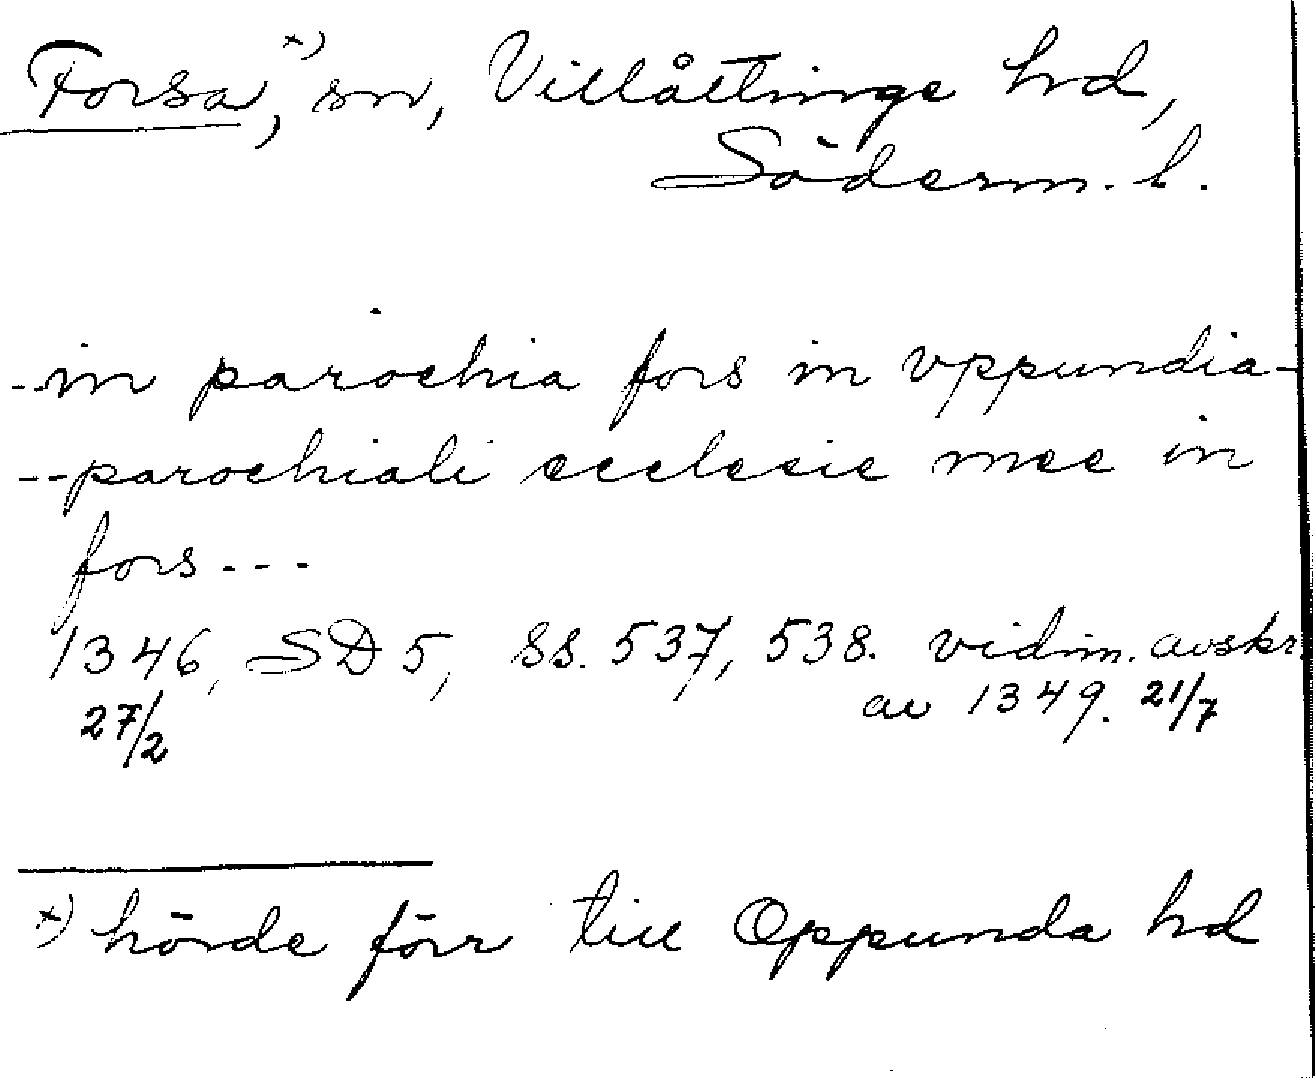 Forsa,ˣ⁾ sn, Villåttinge hd,
Söderm. l.
--in parochia fors in vppundia-
--parochiali ecclesie mee in
fors---
1346, SD 5, ss. 537, 538. vidim. avskr.
27/2 av 1349. 21/7
x) hörde förr till Oppunda hd